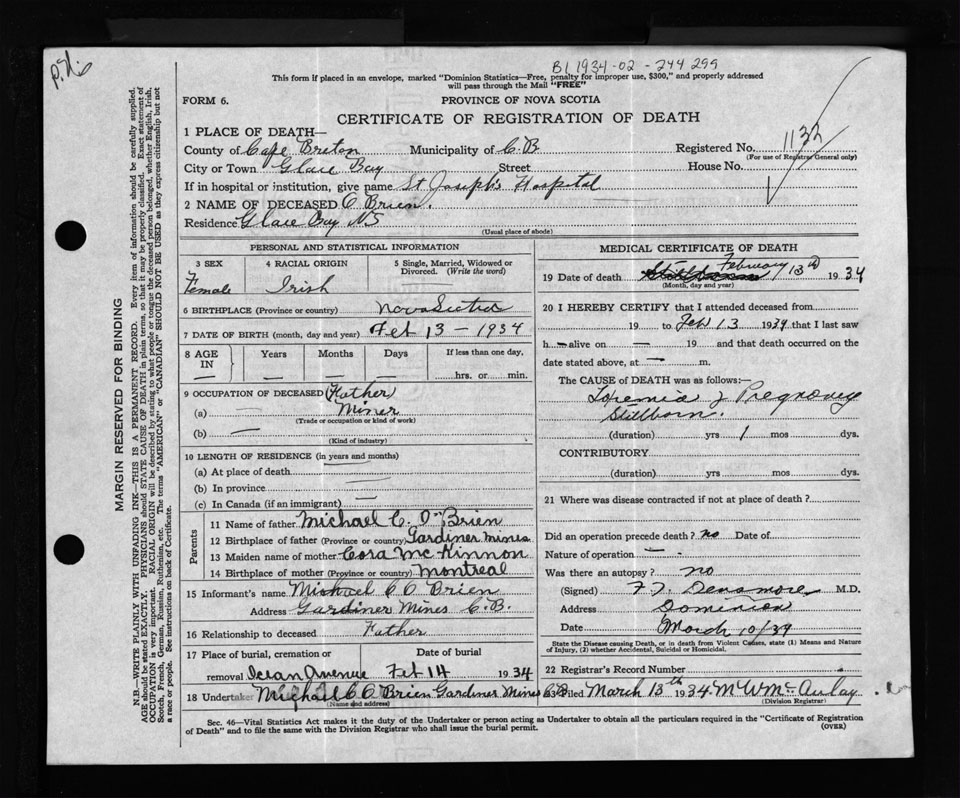 B1 1934-02-244299
This form if placed in an envelope, marked "Dominion Statistics—Free, penalty for improper use, $300," and properly addressed
will pass through the Mail "FREE"
FORM 6.
PROVINCE OF NOVA SCOTIA
CERTIFICATE OF REGISTRATION OF DEATH
1 PLACE OF DEATH—
County of Cape Breton Municipality of C.B Registered No. 1132
(For use of Registrar General only)
City or Town Glace Bay Street House No.
If in hospital or institution, give name St Joseph's Hospital
2 NAME OF DECEASED O Brien.
Residence Glace Bay NS
(Usual place of abode)
PERSONAL AND STATISTICAL INFORMATION
3 SEX 4 RACIAL ORIGIN 5 Single, Married, Widowed or
Divorced. (Write the word)
Female Irish
6 BIRTHPLACE (Province or country) Nova Scotia
7 DATE OF BIRTH (month, day and year) Feb 13 – 1934
8 AGE IN Years Months Days If less than one day,
— — — hrs. or min.
9 OCCUPATION OF DECEASED (Father)
(a) — Miner
(Trade or occupation or kind of work)
(b) —
(Kind of industry)
10 LENGTH OF RESIDENCE (in years and months)
(a) At place of death
(b) In province
(c) In Canada (if an immigrant)
Parents
11 Name of father Michael C. O'Brien
12 Birthplace of father (Province or country) Gardiner Mines
13 Maiden name of mother Cora McKinnon
14 Birthplace of mother (Province or country) Montreal
15 Informant's name Michael C O Brien
Address Gardiner Mines C.B.
16 Relationship to deceased Father
17 Place of burial, cremation or Date of burial
removal Avenue Feb 14 1934
18 Undertaker Michael C O Brien Gardiner Mines C.B
(Name and address)
MEDICAL CERTIFICATE OF DEATH
19 Date of death February 13th 1934
(Month, day and year)
20 I HEREBY CERTIFY that I attended deceased from
19 to Feb 13 1934 that I last saw
h — alive on — 19 and that death occurred on the
date stated above, at — m.
The CAUSE OF DEATH was as follows:—
Toxemia of Pregnancy
Stillborn.
(duration) yrs 1 mos dys.
CONTRIBUTORY
(duration) yrs mos dys.
21 Where was disease contracted if not at place of death?
Did an operation precede death? no Date of
Nature of operation —
Was there an autopsy? no
(Signed) Densmore M.D.
Address Dominion
Date March 10/34
State the Disease causing Death, or in death from Violent Causes, state (1) Means and Nature
of Injury, (2) whether Accidental, Suicidal or Homicidal.
22 Registrar's Record Number
Filed March 13th 1934 M W McAulay
(Division Registrar)
Sec. 46—Vital Statistics Act makes it the duty of the Undertaker or person acting as Undertaker to obtain all the particulars required in the "Certificate of Registration
of Death" and to file the same with the Division Registrar who shall issue the burial permit.
(OVER)
MARGIN RESERVED FOR BINDING
N.B.—WRITE PLAINLY WITH UNFADING INK—THIS IS A PERMANENT RECORD. Every item of information should be carefully supplied.
AGE should be stated EXACTLY. PHYSICIANS should STATE CAUSE OF DEATH in plain terms, so that it may be properly classified. Exact statement of
OCCUPATION is very important. RACIAL ORIGIN will be described by stating to what people or tongue the deceased person belonged, whether English, Irish,
Scotch, French, German, Russian, Ruthenian, etc. The terms "AMERICAN" or "CANADIAN" SHOULD NOT BE USED as they express citizenship but not
a race or people. See instructions on back of Certificate.